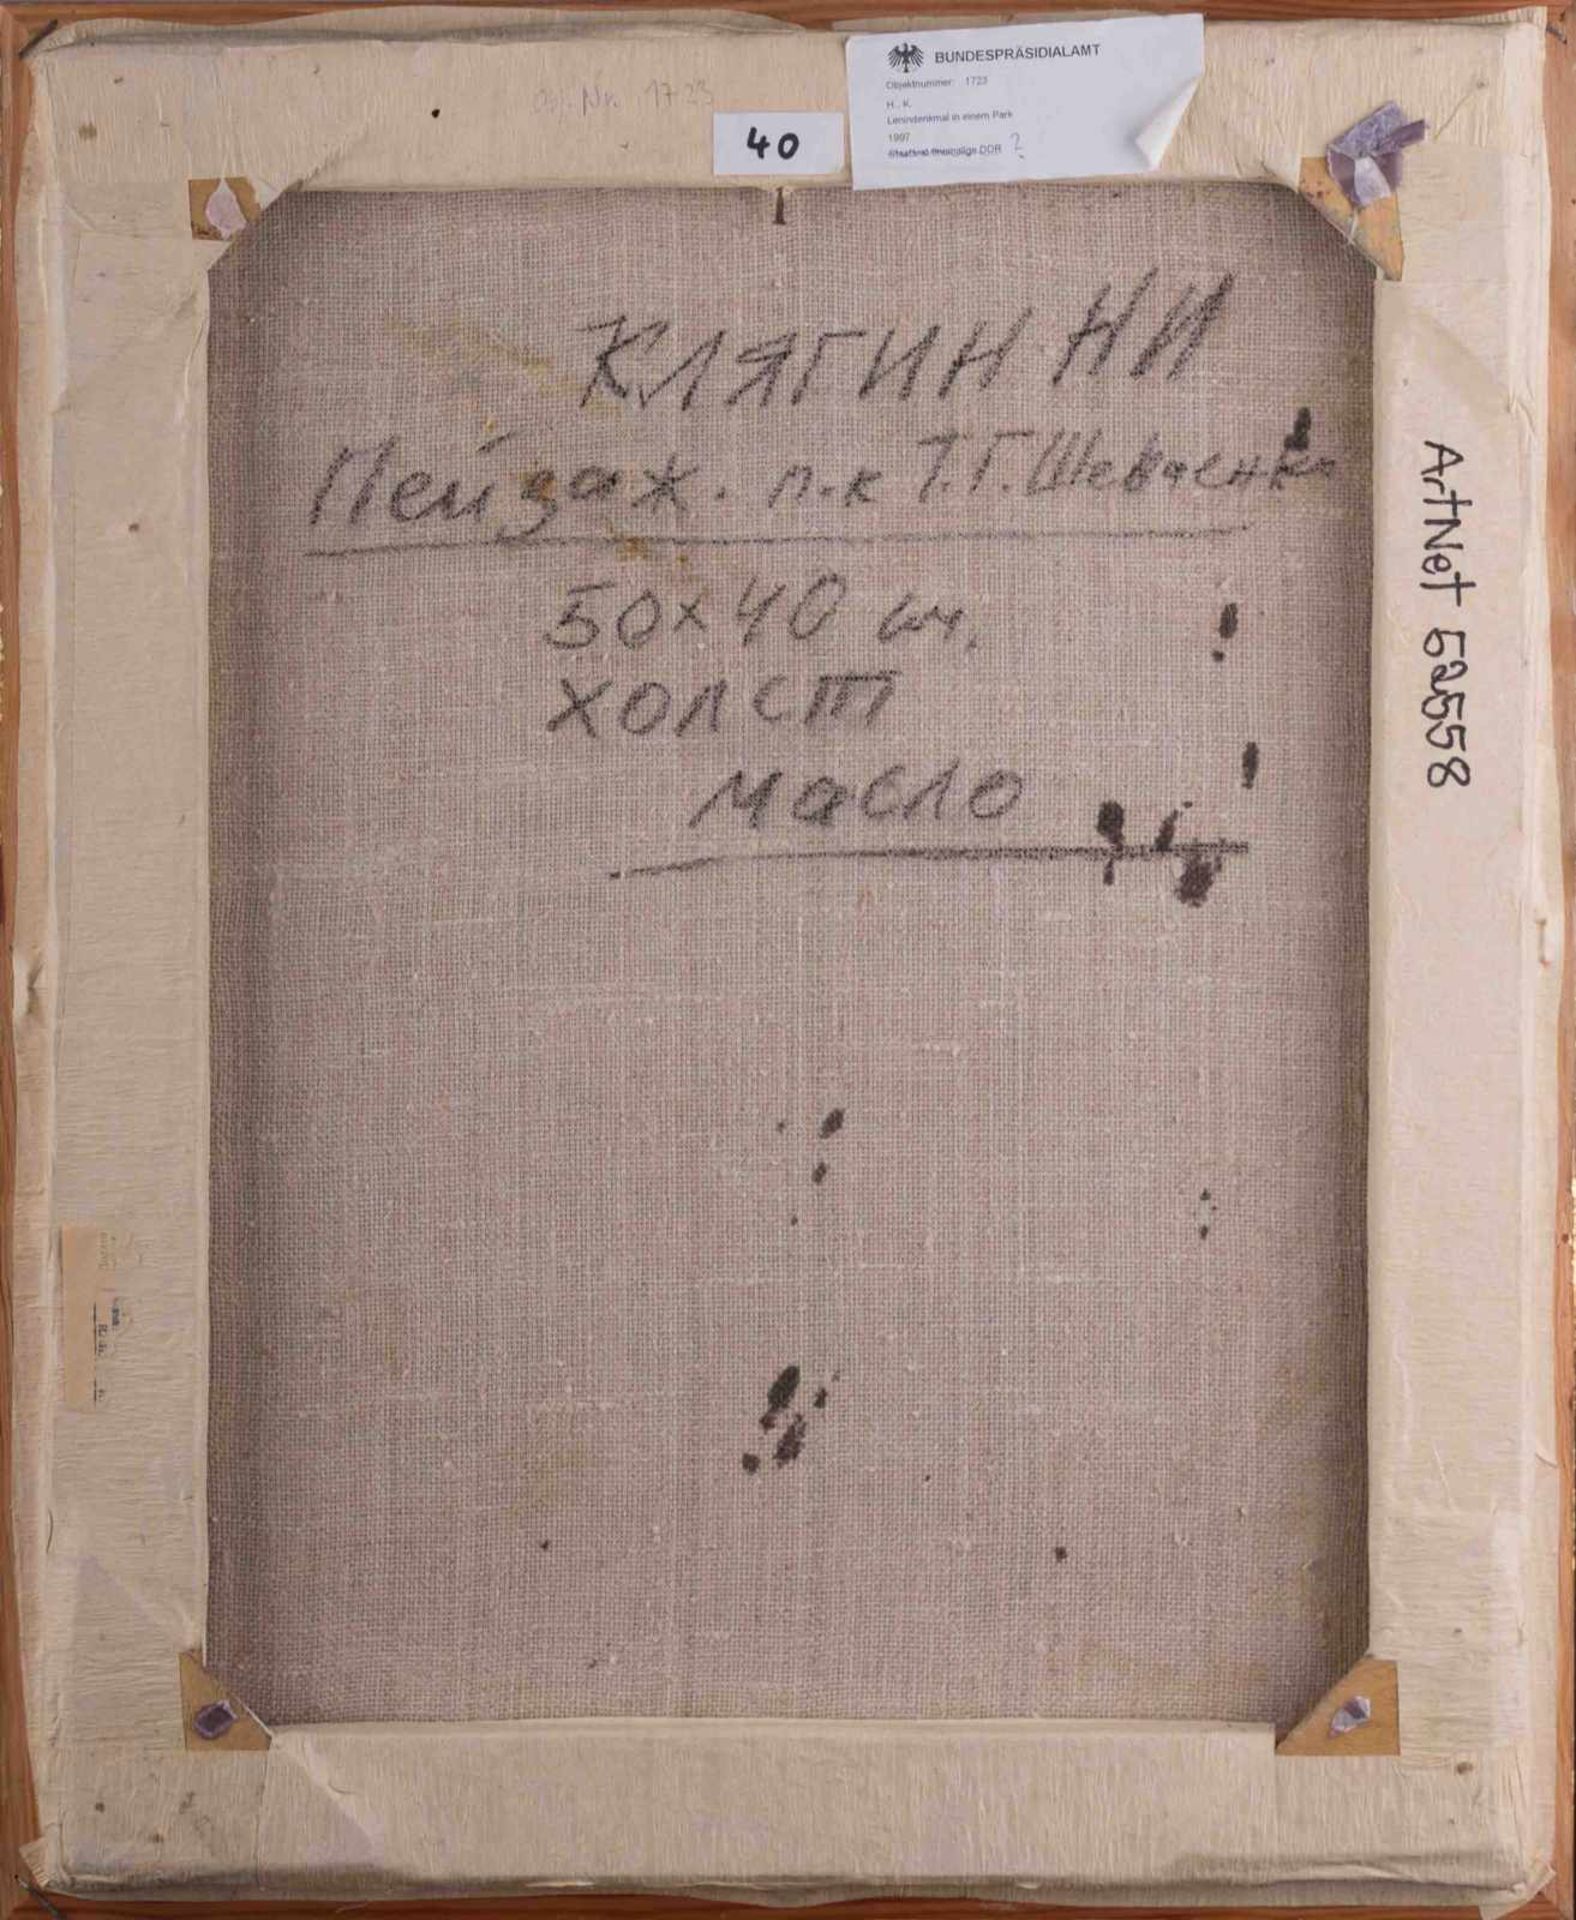 BUNDESPRÄSIDIALAMT
Objektnummer: 1723
H . K.
Lenindenkmal in einem Park
1997
DDR ?
Obj. Nr. 1723
40
КЛЯГИН НИ
Пейзаж. п.к Т.Г. Шевченко
50х40 см.
ХОЛСТ
масло
ArtNet 52558